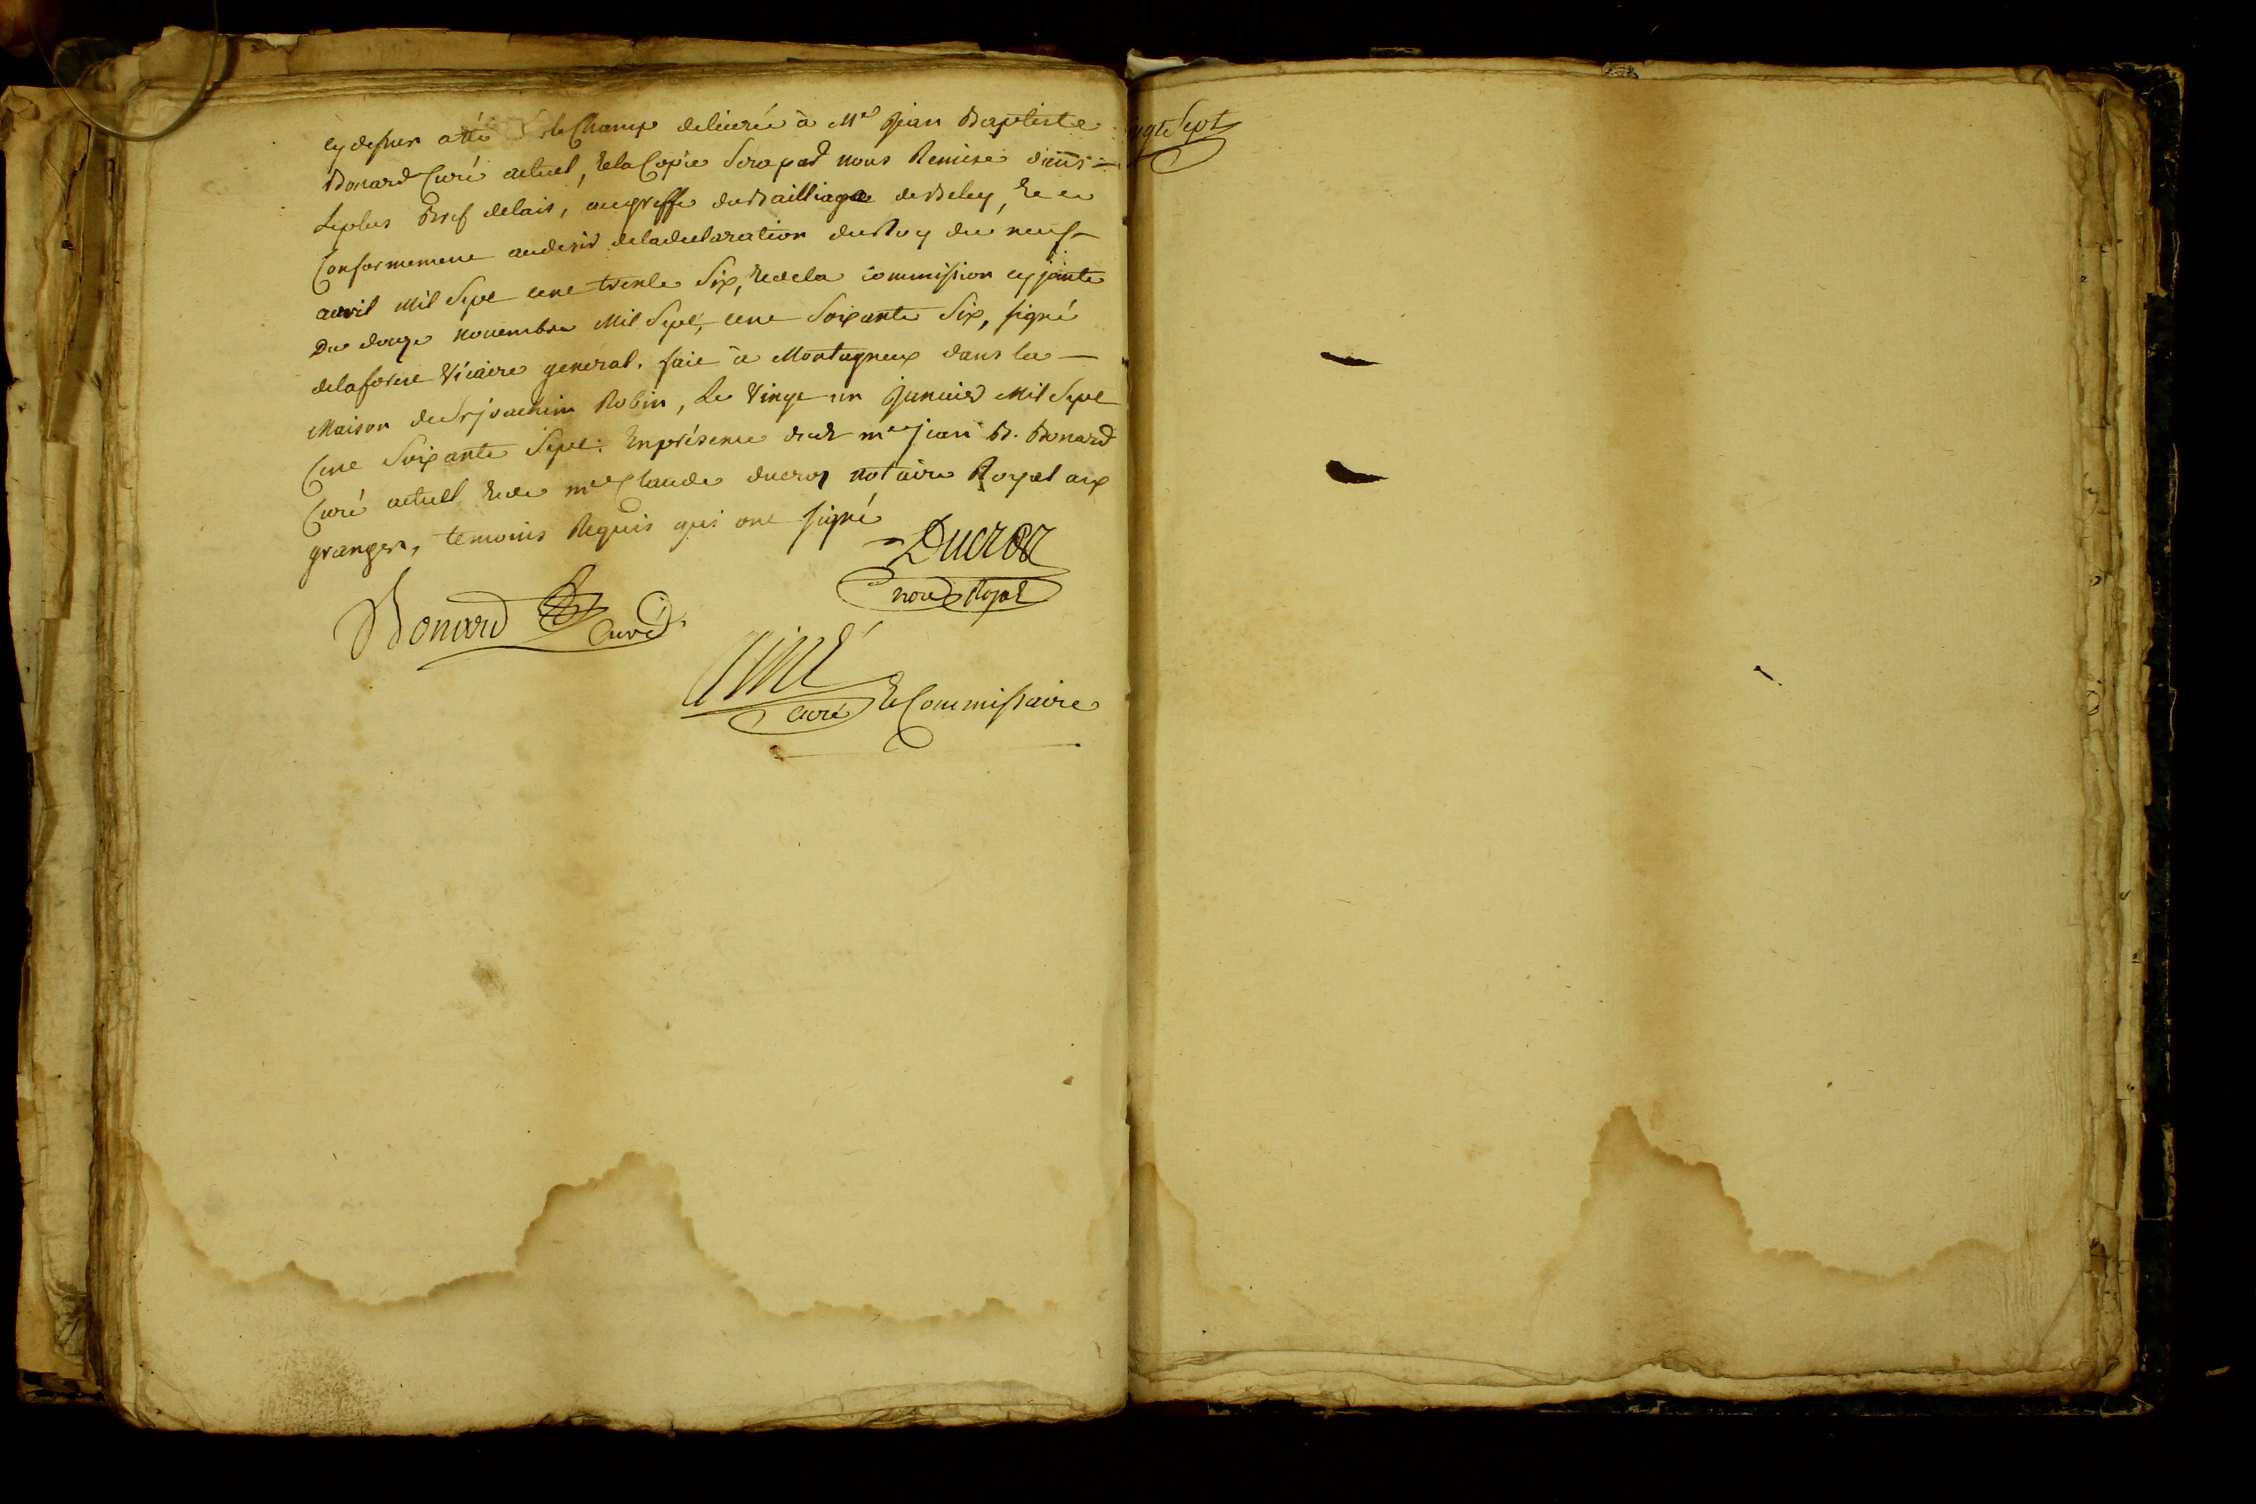 cy dessus a été sur le Champ delivrée à Mre Jean Baptiste
Bonard Curé actuel, & la Copie sera par nous Remise dans
le plus Bref delais, au greffe du Bailliage de Beley, & ce
Conformement au desir de la declaration du Roy du neuf
avril Mil Sept cent trente Six, & de la commission cy jointe
Du douze novembre Mil Sept, cent Soixante Six, signé
delaforest Vicaire general. fait à Montagneux dans la
Maison de Sr joachim Robin, Le Vingt un Janvier Mil Sept
Cent Soixante Sept. En présence dudt mre jean B. Bonard
Curé actuel & de mre Claude ducros notaire Royal aux
granges, temoins Requis qui ont signé
Ducros
nore Royal
Bonard Curé
Curé & Commissaire
vgt Sept